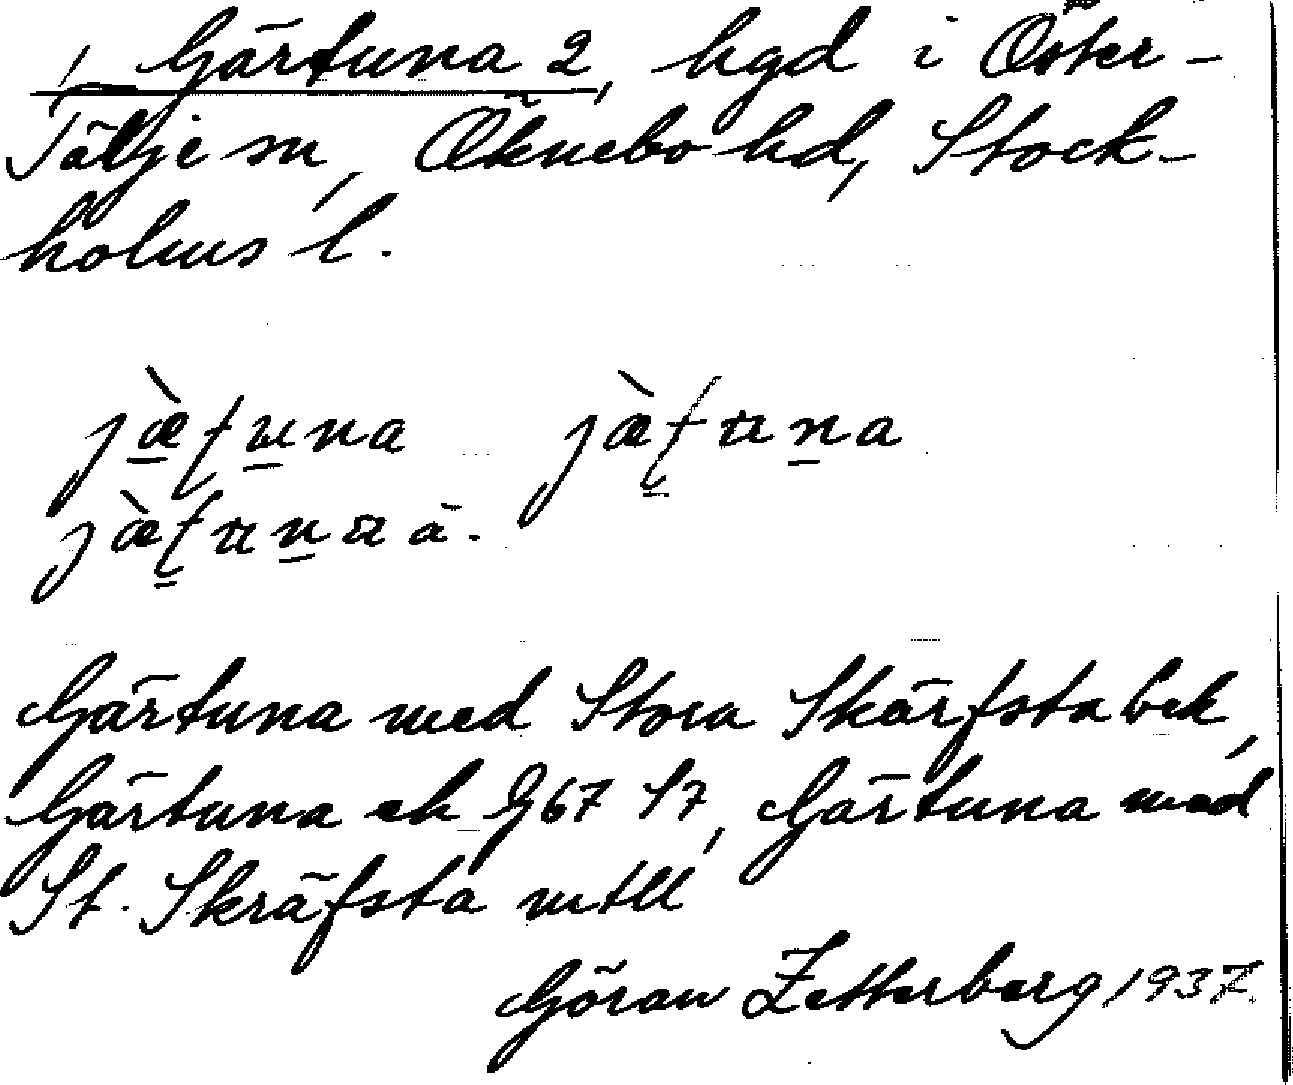 Gärtuna 2, hgd i Öster-
Tälje sn, Öknebo hd, Stock-
holms l.
jæ̀tuna jæ̀tuna
Gärtuna med Stora Skärfsta bek,
Gärtuna ek G67 S7, Gärtuna med
St. Skräfsta mtll
Göran Zetterberg 1937.